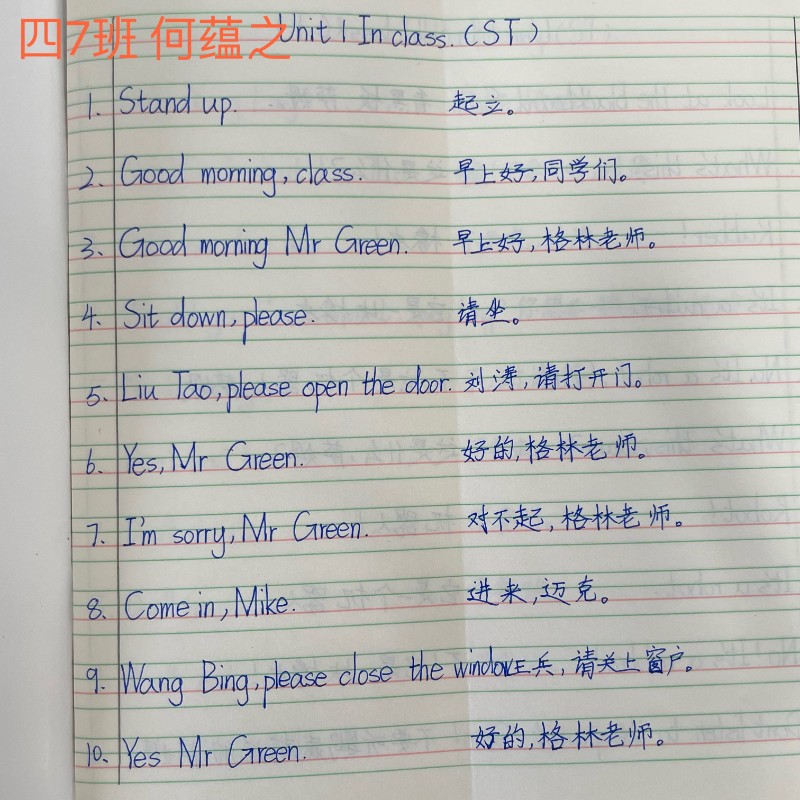 四7班 何蕴之
Unit 1 In class. (ST)
1. Stand up. 起立。
2. Good morning, class. 早上好,同学们。
3. Good morning Mr Green. 早上好,格林老师。
4. Sit down, please. 请坐。
5. Liu Tao, please open the door. 刘涛,请打开门。
6. Yes, Mr Green. 好的,格林老师。
7. I'm sorry, Mr Green. 对不起,格林老师。
8. Come in, Mike. 进来,迈克。
9. Wang Bing, please close the window. 王兵,请关上窗户。
10. Yes Mr Green. 好的,格林老师。